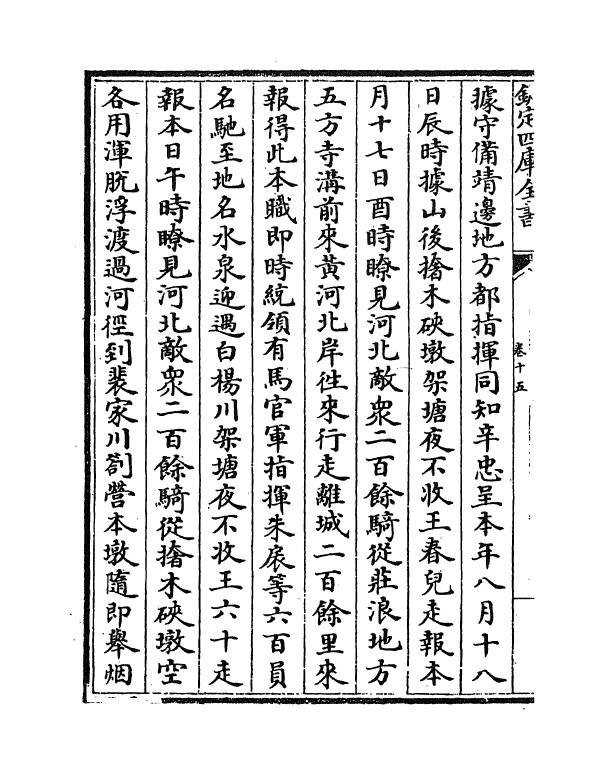 欽定四庫全書
卷十五
據守備靖邊地方都指揮同知辛忠呈本年八月十八
日辰時據山後搶木硤墩架塘夜不收王春兒走報本
月十七日酉時瞭見河北敵衆二百餘騎從莊浪地方
五方寺溝前來黄河北岸徃來行走離城二百餘里來
報得此本職即時統領有馬官軍指揮朱扆等六百員
名馳至地名水泉迎遇白楊川架塘夜不收王六十走
報本日午時瞭見河北敵衆二百餘騎從搶木硤墩空
各用渾脱浮渡過河徑到裴家川劄營本墩隨即舉烟